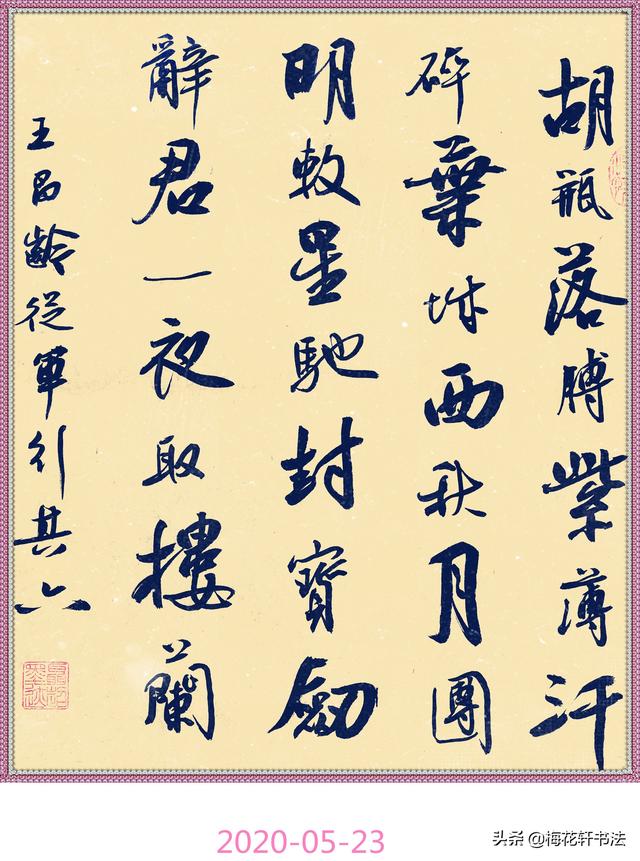 胡瓶落膊紫薄汗
碎葉城西秋月團
明敕星馳封寶劍
辭君一夜取樓蘭
王昌齡從軍行其六
2020-05-23
头条 @梅花轩书法